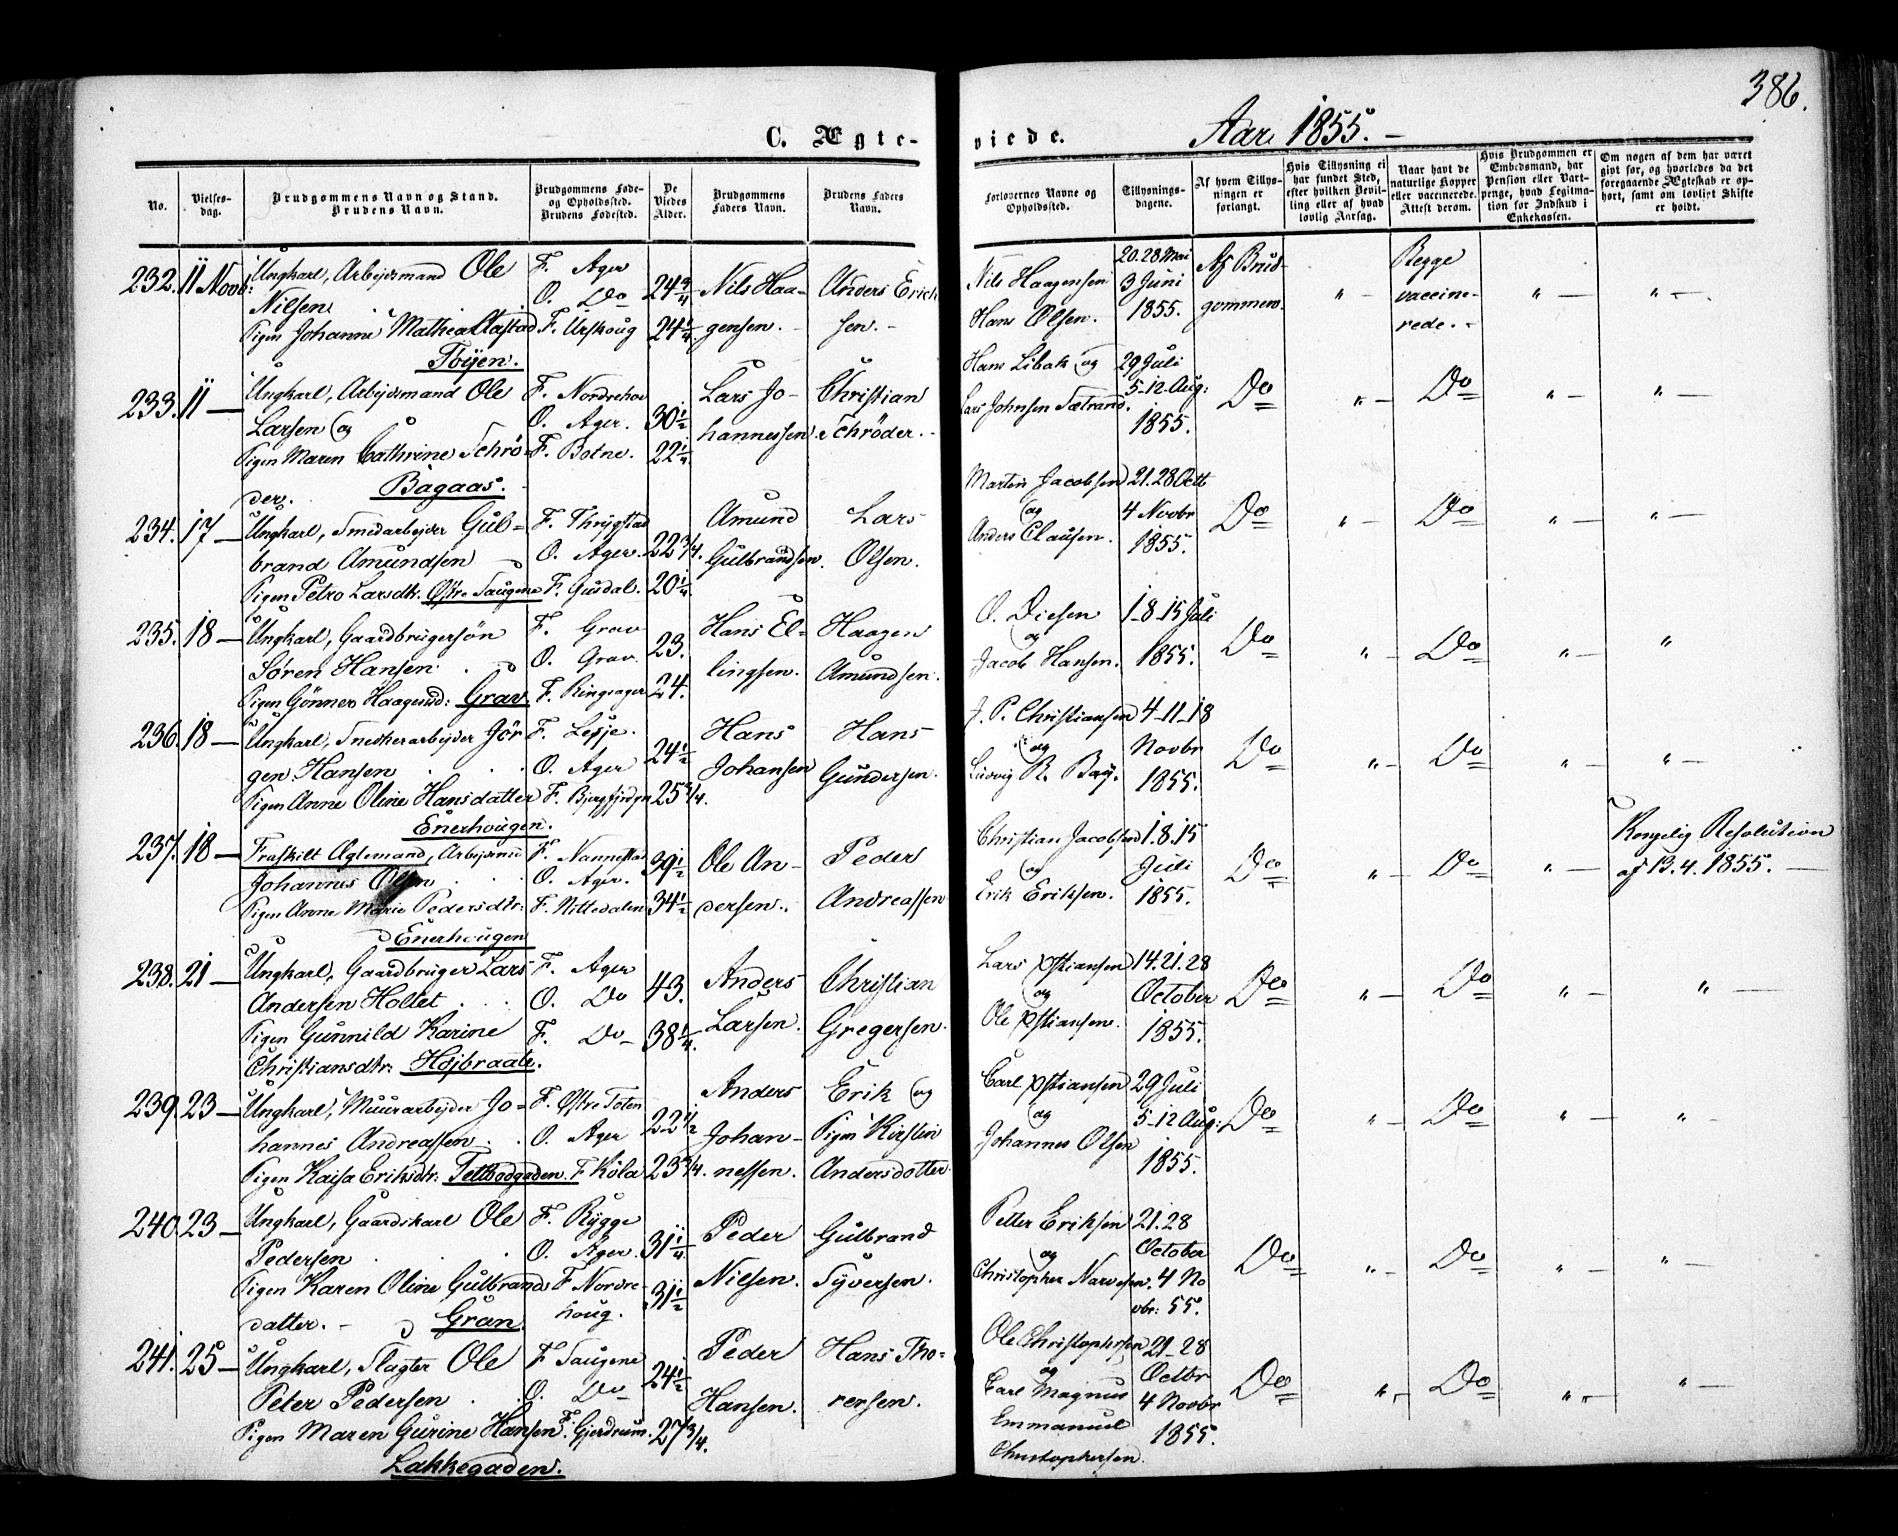 386.
C. Ægte-
viede.
Aar 1855.
No.
Vielses-
dag.
Brudgommens Navn og Stand.
Brudens Navn.
Brudgommens Føde-
og Opholdssted.
Brudens Fødested.
De
Viedes
Alder.
Brudgommens
Faders Navn.
Brudens Faders
Navn.
Forlovernes Navne og
Opholdssted.
Tillysnings-
dagene.
Af hvem Tillys-
ningen er
forlangt.
Hvis Tillysning ei
har fundet Sted,
efter hvilken Bevil-
ling eller af hvad
lovlig Aarsag.
Naar havt de
naturlige Kopper
eller vaccinerede.
Attest derom.
Hvis Brudgommen er
Embedsmand, har
Pension eller Vart-
penge, hvad Legitima-
tion for Indskud i
Enkekassen.
Om nogen af dem har været
gift før, og hvorledes da det
foregaaende Ægteskab er op-
hørt, samt om lovligt Skifte
er holdt.
232. 11 Novb: Ungkarl, Arbejdsmand Ole F. Ager
Nilsen O. Do 24 3/4 Nils Haa- Anders Erich
Pigen Johanne Mathea Aastad F. Urskoug 24 1/4 gensen. sen.
Tøyen.
Nils Haagensen
Hans Olsen.
20. 28 Mai
3 Juni
1855.
Af Brud-
gommen.
" —
Begge
vaccine-
rede.
" —
" —
233. 11 — Ungkarl, Arbejdsmand Ole F. Nordrehov
Larsen og O. Ager. 30 1/2 Lars Jo- Christian
Pigen Maren Cathrine Schrø- F. Botne. 22 1/4 hannessen. Schrøder.
der. Bagaas.
Hans Libak og
Lars Johnsen Sætrand.
29 Juli
5-12 Aug:
1855.
Do " — Do " — " —
234. 17 — Ungkarl, Smedarbejder Gul- F. Thrygstad
brand Amundsen O. Ager. 22 3/4. Amund Gulbrandsen. Lars Olsen.
Pigen Petro Larsdtr. Østre Saugene F. Gusdal. 20 1/4
Marten Jacobsen
og
Anders Clausen.
21. 28 Octb
4 Novbr
1855.
Do " — Do " — " —
235. 18 — Ungkarl, Gaardbrugersøn F. Grav
Søren Hansen O. Grav. 23. Hans El- Haagen
Pigen Gønner Haagensd: Grav. F. Ringsager 24. lingsen. Amundsen.
O. Diesen
og
Jacob Hansen.
1-8-15 Juli
1855.
Do " — Do " — "
236. 18 — Ungkarl, Snedkerarbejder Jør F. Lesje.
gen Hansen O. Ager 24 1/2 Hans Johansen Hans Gundersen.
Pigen Anne Oline Hansdatter F. 25 3/4.
Enerhougen.
J. P. Christiansen
og
Ludvig R. Bay.
4-11-18
Novbr
1855.
Do " — Do " — " —
237. 18 — Fraskilt Ægtemand, Arbejdsmd F. Nannestad
Johannes Olsen O. Ager. 39 1/2 Ole An- Peder
Pigen Anne Marie Pedersdtr: F. Nittedalen 34 1/2 dersen. Andreassen
Enerhougen
Christian Jacobsen
og
Erik Eriksen.
1.8.15
Juli
1855.
Do " — Do " —
Kongelig Resolution
af 13.4.1855. —
238. 21 — Ungkarl, Gaardbruger Lars F. Ager
Andersen Hollet O. Do 43. Anders Christian
Pigen Gunnild Karine F. Do 38 1/4. Larsen. Gregersen.
Christiansdtr: Højbraate.
Lars Xstiansen
og
Ole Xstiansen.
14. 21. 28
October
1855.
Do " — Do " — " —
239. 23 — Ungkarl, Muurarbejder Jo- F. Østre Toten
hannes Andreassen O. Ager 22 1/2 Anders Johan- Erik og Pigen Kirstin
Pigen Kaisa Eriksdtr: F Köla 23 3/4. nessen. Andersdatter.
Carl Xstiansen
og
Johannes Olsen
29 Juli
5-12 Aug:
1855.
Do " — Do " — " —
240. 23 — Ungkarl, Gaardskarl Ole F. Rygge
Pedersen O. Ager. 31 1/4 Peder Gulbrand
Pigen Karen Oline Gulbrands F. Nordre- 31 1/2 Nilsen. Syversen.
datter. Grøn houg.
Petter Eriksen
og
Christopher Narvesen.
21. 28
October
4 No
vbr: 55.
Do " — Do " — " —
241. 25 — Ungkarl, Slagter Ole F Saugene
Peter Pedersen O. Do 24 1/2 Peder Hans Tho-
Pigen Maren Gurine Hansen F. Gjerdrum. 27 3/4. Hansen. rersen.
Lakkegaden.
Ole Christophersen
og
Carl Magnus
Emmanuel
Christophersen.
21-28
Octbr
4 Novbr
1855.
Do " — Do " — " —